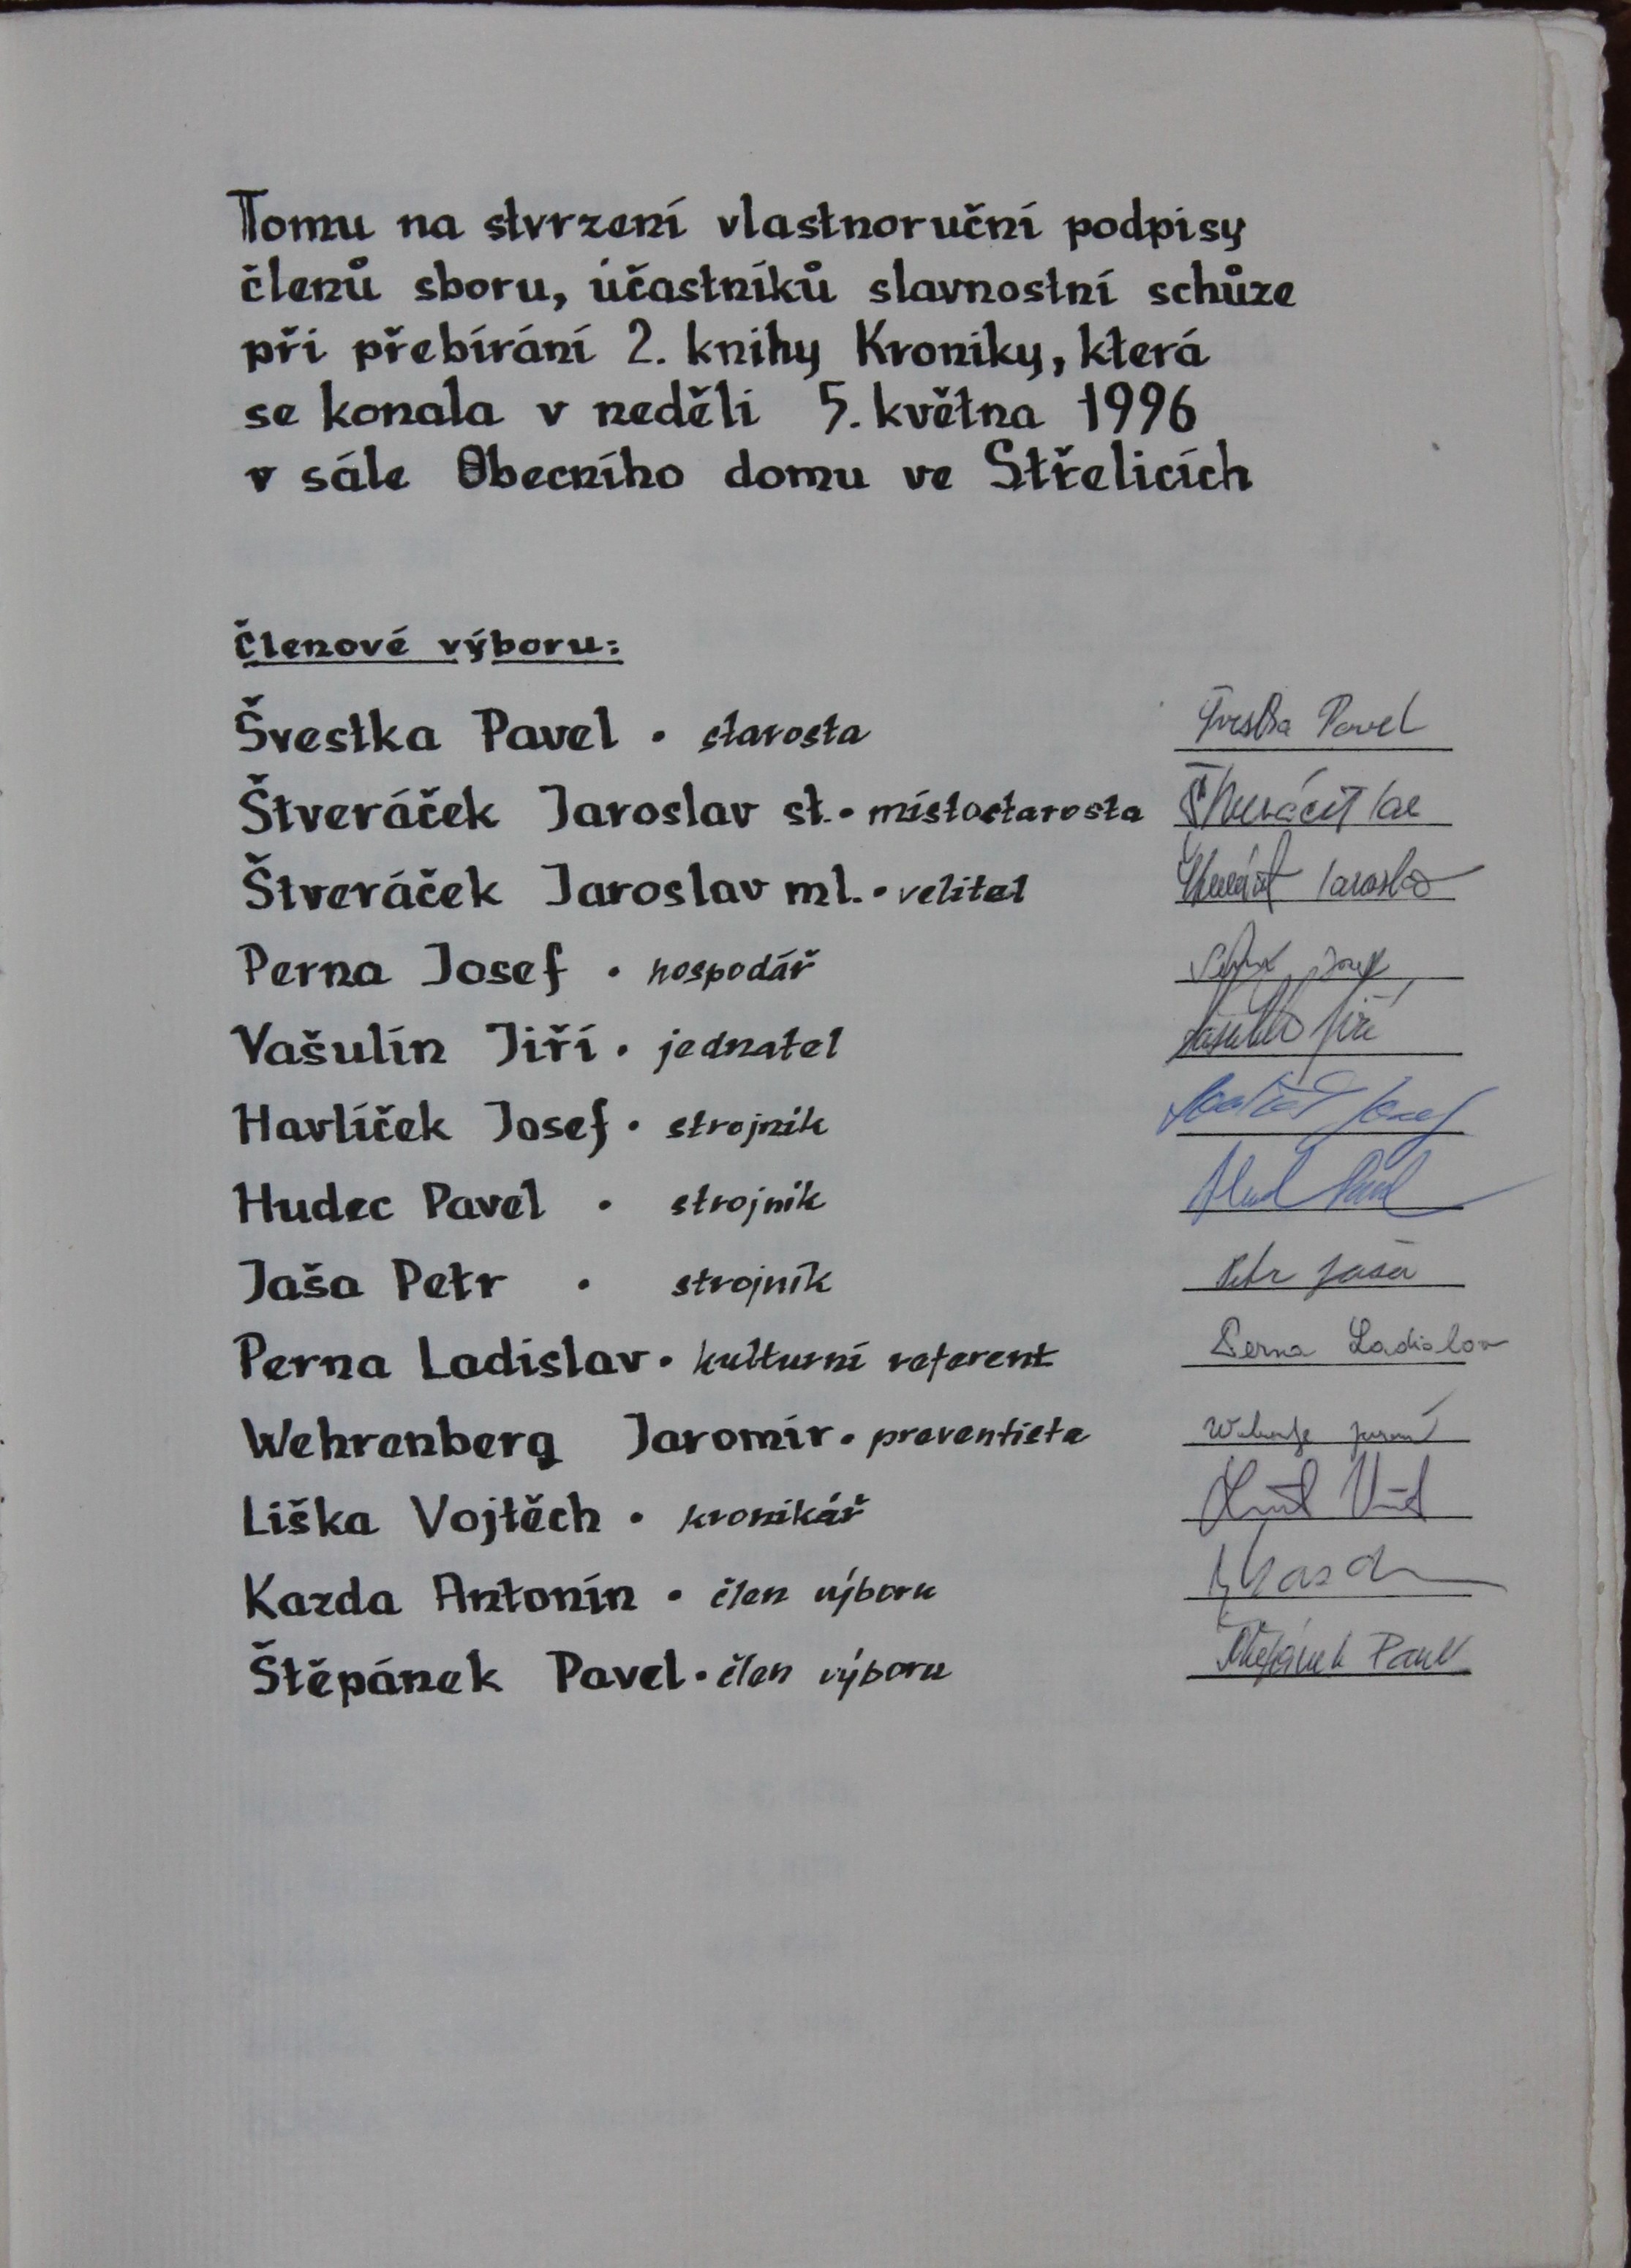 Tomu na stvrzení vlastnoruční podpisy
členů sboru, účastníků slavnostní schůze
při přebírání 2. knihy Kroniky, která
se konala v neděli 5. května 1996
v sále Obecního domu ve Střelicích
Členové výboru:
Švestka Pavel • starosta Švestka Pavel
Štveráček Jaroslav st. • místostarosta
Štveráček Jaroslav ml. • velitel Jaroslav
Perna Josef • hospodář Josef
Vašulín Jiří • jednatel Jiří
Havlíček Josef • strojník Josef
Hudec Pavel • strojník
Jaša Petr • strojník Petr Jaša
Perna Ladislav • kulturní referent Perna Ladislav
Wehrenberg Jaromír • preventista
Liška Vojtěch • kronikář
Kazda Antonín • člen výboru
Štěpánek Pavel • člen výboru Štěpánek Pavel